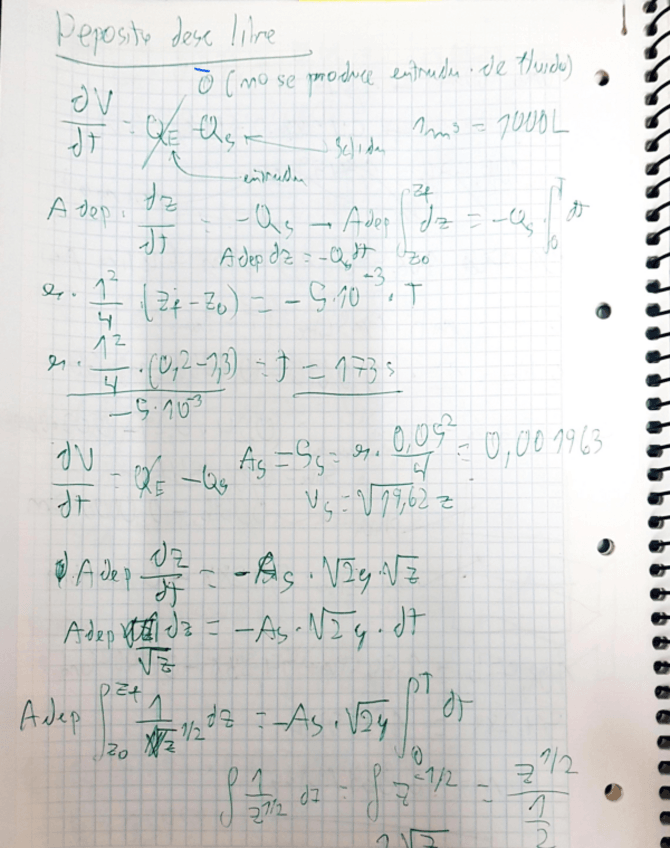 Deposito desc libre
0 (no se produce entrada de fluido)
dV/dt = Q_E - Q_S ← Salida
1m³ = 1000L
entrada
A dep. dz/dt = -Q_S → Adep ∫_{z0}^{zf} dz = -Q_S ∫_0^T dt
Adep dz = -Q_S dt
π · 1²/4 · (zf - z0) = -5·10⁻³ · T
π · 1²/4 · (0,2-1,3) / -5·10⁻³ = T = 173 s
dV/dt = Q_E - Q_S
A_S = S_S = π · 0,05²/4 = 0,001963
V_S = √19,62 z
Adep dz/dt = -A_S · √2g · √z
Adep dz/√z = -A_S · √2g · dt
Adep ∫_{z0}^{zf} 1/z^{1/2} dz = -A_S · √2g ∫_0^T dt
∫ 1/z^{1/2} dz = ∫ z^{-1/2} = z^{1/2} / (1/2)